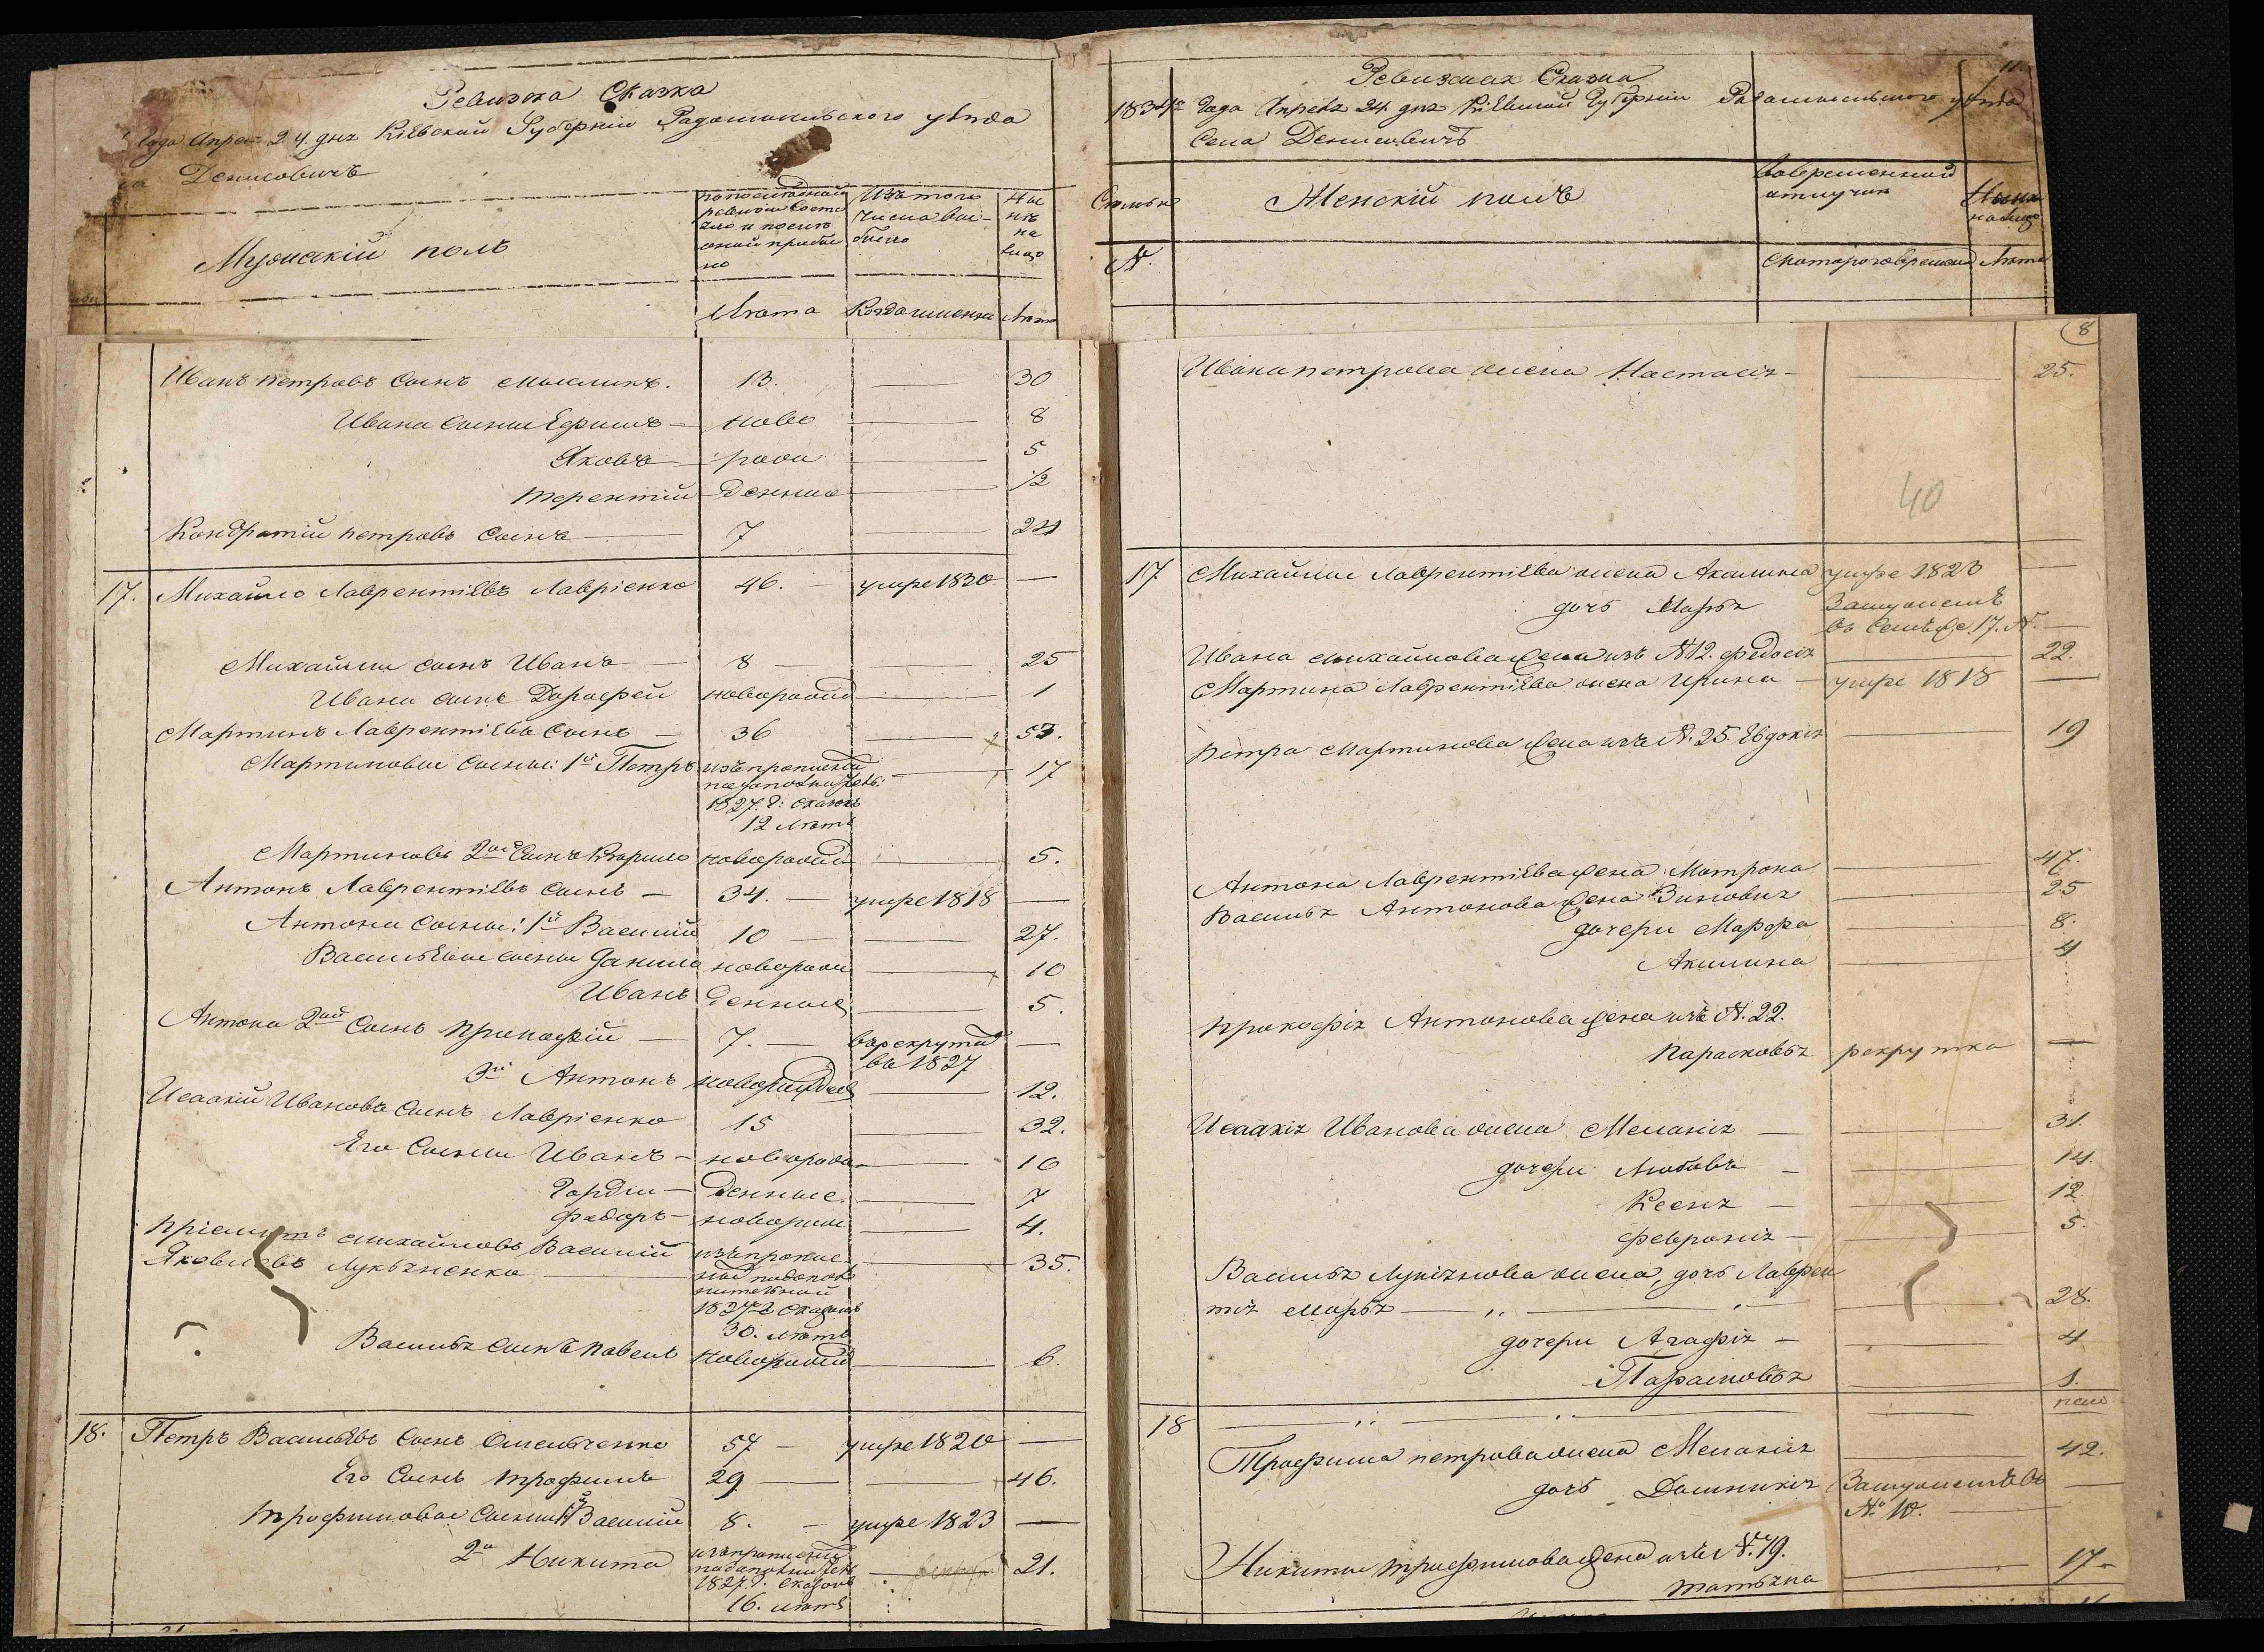 Ревизска Сказка
Года Апреля 24. дня Кіевской Губерніи Радомысльского уѣзда
Денисовичъ
Мужескій полъ
по последней ревизіи состояло и после оной прибыло
Изъ того числа выбыло
Ныне на лицо
Лѣта
Когда именно
Лѣта
Иванъ петровъ Сынъ 13. 30
Ивана Сыны Ефимъ ново 8
Яковъ рож 5
терентій денные 1/2
Кондратій петровъ Сынъ 7 24
17. Михайло Лаврентіевъ Лавріенко 46. умре 1830
Михайлы сынъ Иванъ 8 25
Ивана сынъ Дорофей новорожд 1
Мартинъ Лаврентіевъ Сынъ 36 53.
Мартиновы Сыны: 1й Петръ изъ прописных 17
по дополнитель:
1827. г: сказкѣ
12 лѣтъ
Мартиновъ 2ой Сынъ Кирило новорожд 5.
Антонъ Лаврентіевъ Сынъ 34. умре 1818
Антона Сыны: 1й Василий 10 27.
Васильевы сыны Данило новорож 10
Иванъ денные 5.
Антона 2ой Сынъ Прокофій 7. в рекруты
въ 1827
3й Антонъ новорожден 12.
Исаакій Ивановъ Сынъ Лавріенко 15 32.
Его Сыны Иванъ новорож 10
Гордій денные 7
Федоръ новорож 4.
Пріемышъ михайловъ Василий изъ пропис 35.
Яковлевъ Лукьяненко ной по допол
нительной
1827 г сказкѣ
30. лѣтъ
Василья Сынъ Павелъ новорожд 6.
18. Петръ Васильевъ Сынъ Омельченко 57 умре 1820
Его Сынъ трофимъ 29 46.
трофимовы Сыны 1й Василий 8. умре 1823
2й Никита изъ прописных 21.
по дополнитель
1827. г. сказкѣ
16. лѣтъ
Ревизская Сказка
1834го Года Апреля 24 дня Кіевской Губерніи Радомысльского уѣзда
Села Денисовичъ
11.
Семьи
Женскій полъ
Во временной отлучкѣ
Ныне на лицо
№.
Скоторого времени
Лѣта
8
Ивана петрова жена Настасія 25.
40
17 Михайлы Лаврентіева жена Акилина умре 1823
дочь Марья Замужемъ
въ семье 17. №.
Ивана михайлова жена изъ №12. федосія 22.
Мартина Лаврентіева жена Ирина умре 1818
Петра мартинова жена изъ №. 25. Евдокія 19
Антона Лаврентіева жена Матрона 47.
Василья Антонова жена Зиновья 25
дочери Марфа 8.
Акилина 4
прокофія Антонова жена изъ №. 22.
Парасковья рекрутка
Исаакія Иванова жена Меланія 31.
дочери Любовь 14.
Ксенія 12
феврония 5.
Василья Лукіянова жена, дочь Лаврен
тія марья 28.
дочери Агафія 4
Парасковья 1.
18
Трофима петрова жена Меланія 42.
дочь Домникія Замужемъ въ
№. 10.
Никиты трофимова жена изъ №. 19.
татьяна 17